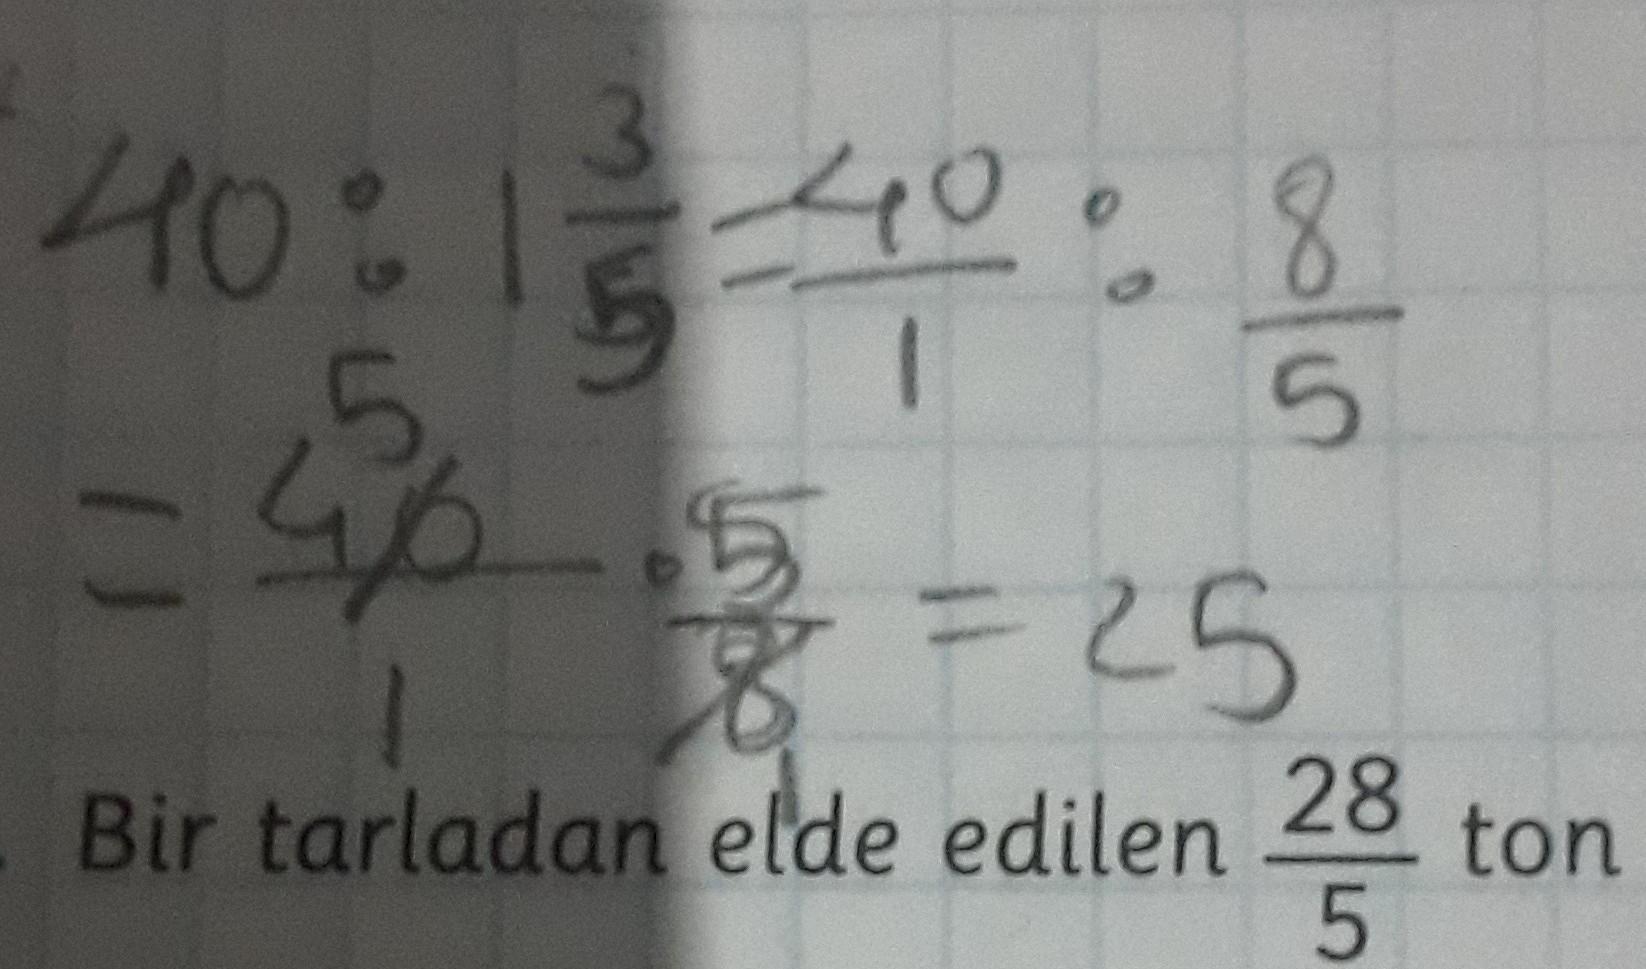 40 : 1 3/5 = 40/1 : 8/5
= 40/1 · 5/8 = 25
5
1
Bir tarladan elde edilen 28/5 ton